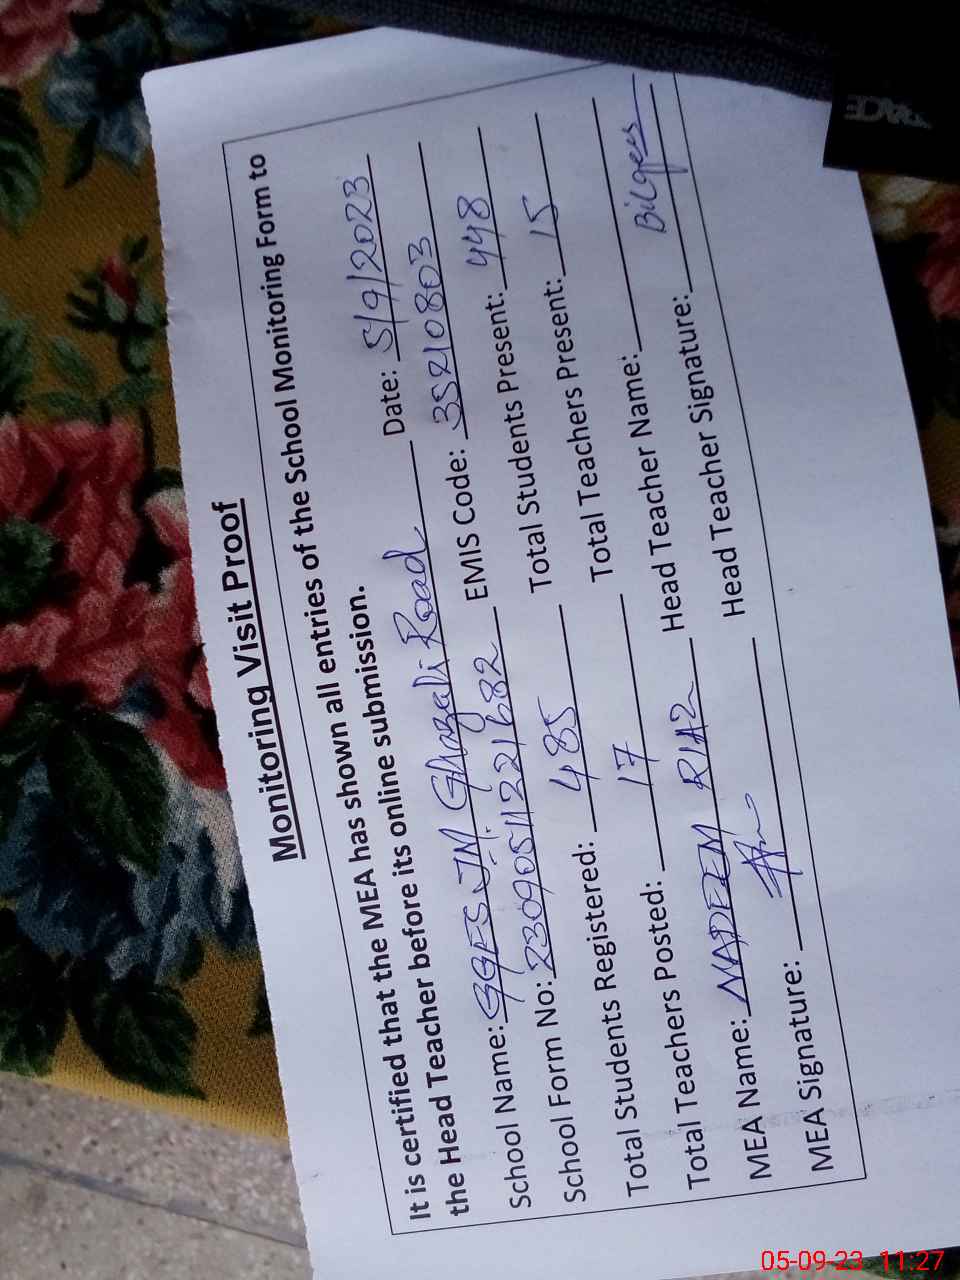 Monitoring Visit Proof
It is certified that the MEA has shown all entries of the School Monitoring Form to
the Head Teacher before its online submission.
School Name: GGES JM. Ghazali Road Date: 5/9/2023
School Form No: 23090511221682 EMIS Code: 35210803
Total Students Registered: 485 Total Students Present: 448
Total Teachers Posted: 17 Total Teachers Present: 15
MEA Name: NADEEM RIAZ Head Teacher Name:
MEA Signature: Head Teacher Signature: Bilqees
05-09-23 11:27